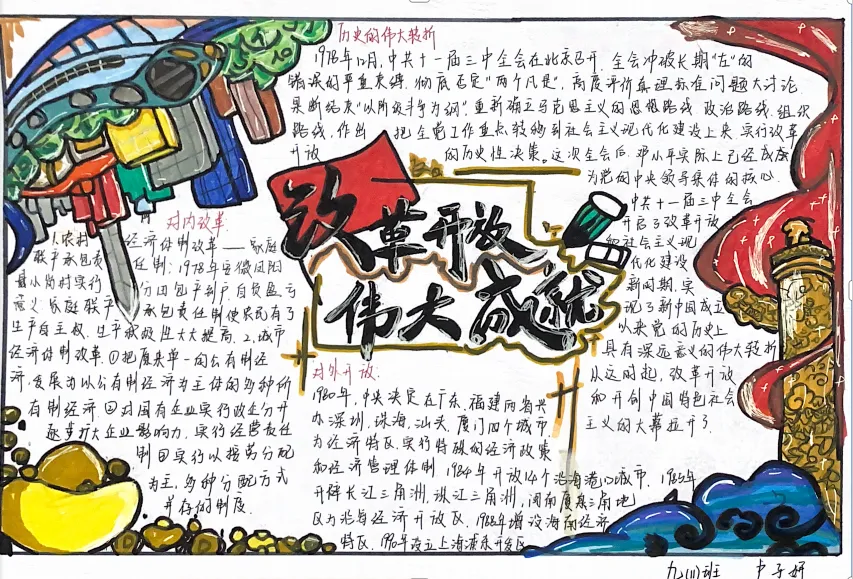 历史的伟大转折
1978年12月,中共十一届三中全会在北京召开,全会冲破长期"左"的
错误的严重束缚,彻底否定"两个凡是",高度评价真理标准问题大讨论
果断结束"以阶级斗争为纲",重新确立马克思主义的思想路线 政治路线,组织
路线,作出 把全党工作重点转移到社会主义现代化建设上来 实行改革
开放 的历史性决策。这次全会后,邓小平实际上已经成为
为党的中央领导集体的核心.
中共十一届三中全会
开启了改革开放
和社会主义现
代化建设
新时期,实
现了新中国成立
以来党的历史上
具有深远意义的伟大转折
从这时起,改革开放
和开创中国特色社会
主义的大幕拉开了.
改革开放
伟大成就
对内改革:
1.农村 经济体制改革——家庭
联产承包责 任制:1978年安徽凤阳
县小岗村实行 分田包产到户,自负盈亏
意义 家庭联产 承包责任制使农民有了
生产自主权,生产积极性大大提高.2.城市
经济体制改革.①把原来单一的公有制经
济,发展为以公有制经济为主体的多种所
有制经济.②对国有企业实行政企分开
逐步扩大企业影响力,实行经营责任
制③实行以按劳分配
为主,多种分配方式
并存的制度.
对外开放:
1980年,中央决定在广东,福建两省兴
办深圳,珠海,汕头,厦门四个城市
为经济特区,实行特殊的经济政策
和经济管理体制 1984年开放14个沿海港口城市,1985年
开辟长江三角洲,珠江三角洲,闽南厦泉三角地
区为沿海经济开放区,1988年增设海南经济
特区,1990年设立上海浦东开发区
九(11)班 子妍